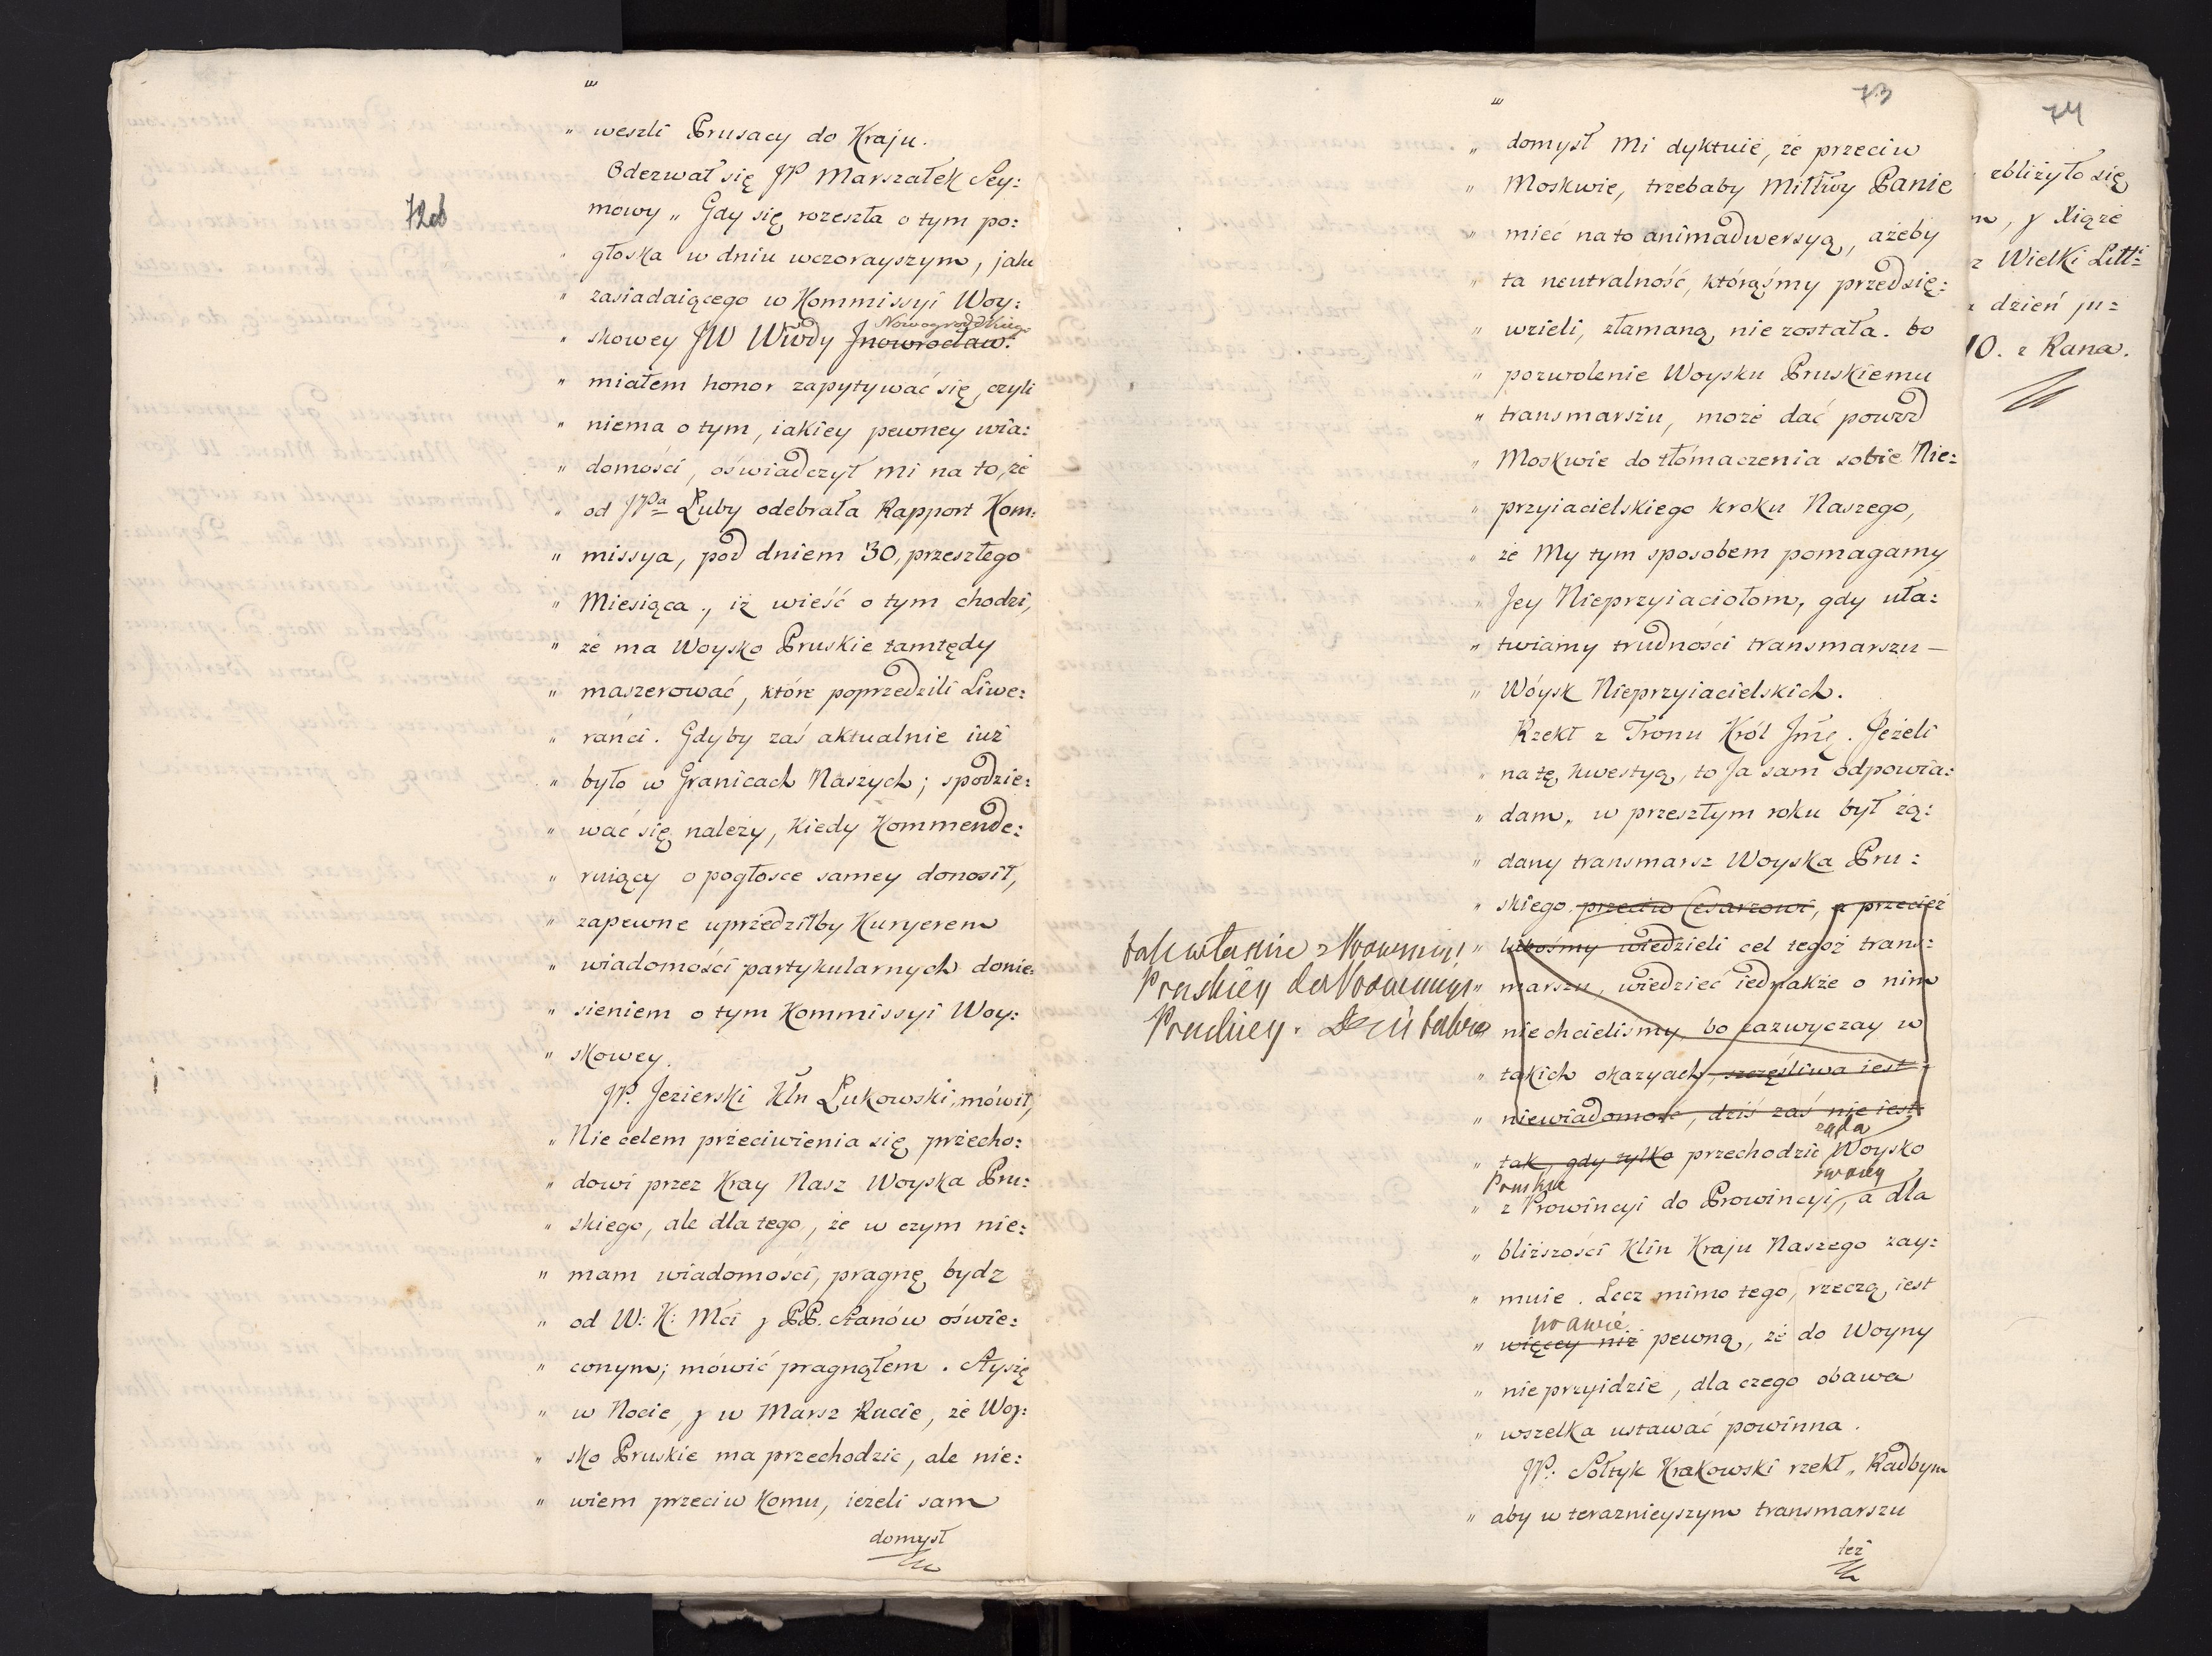 „ weszli Prusacy do Kraju.
Odezwał się JP Marszałek Sey:
mowy „ Gdy się rozeszła o tym po:
72ob
„ głoska w dniu wczorayszym, jako
„ zasiadaiącego w Kommissyi Woy:
Nowogrodzkiego
„ skowey JW Wwdy Jnowrocław:
„ miałem honor zapytywać się, czyli
„ niema o tym, iakiey pewney wia:
„ domości, oświadczył mi na to, że
„ od JPa Luby odebrała Rapport Kom:
„ missya, pod dniem 30, przeszłego
„ Miesiąca, iż wieść o tym chodzi,
„ że ma Woysko Pruskie tamtędy
„ maszerować, które poprzedzili Liwe:
„ ranci. Gdyby zaś aktualnie iuż
„ było w Granicach Naszych; spodzie:
„ wać się należy, Kiedy Kommende:
„ ruiący o pogłosce samey donosił,
„ zapewne uprzedziłby Kuryerem
„ wiadomości partykularnych donie:
„ sieniem o tym Kommissyi Woy:
„ skowey.
JP. Jezierski Kln Łukowski, mówił,
„ Nie celem przeciwienia się przecho:
„ dowi przez Kray Nasz Woyska Pru:
„ skiego, ale dla tego, że w czym nie:
„ mam wiadomości, pragnę bydz
„ od W: K: Mci y PP. Stanów oświe:
„ conym; mówić pragnąłem. Słyszę
„ w Nocie, y w Marsz Rucie, że Woy:
„ sko Pruskie ma przechodzic, ale nie:
„ wiem przeciw Komu, ieżeli sam
domysł
73
„ domysł mi dyktuie, że przeciw
„ Moskwie, trzebaby Miłłwy Panie
„ mieć na to animadwersyą, ażeby
„ ta neutralność, którąśmy przedsię:
„ wzieli, złamaną nie została. bo
„ pozwolenie Woysku Pruskiemu
„ transmarszu, może dać powód
„ Moskwie do tłómaczenia sobie Nie:
„ przyiacielskiego kroku Naszego,
„ że My tym sposobem pomagamy
„ Jey Nieprzyiaciołom, gdy uła:
„ twiamy trudności transmarszu —
„ Wóysk Nieprzyiacielskich.
Rzekł z Tronu Król Jmę. Jeżeli
„ na tę kwestyą, to Ja sam odpowia:
„ dam, w przeszłym roku był żą:
„ dany transmarsz Woyska Pru:
„ skiego przeciw Cesarzowi, a przecież
„ lubośmy wiedzieli cel tegoż trans:
„ marszu, wiedzieć iednakże o nim
„ niechcielismy, bo zazwyczay w
„ takich okazyach, szczęśliwa iest
„ niewiadomość, dziś zaś nie iest
tak właśnie z Prowincyi
Pruskiey do Prowincyi
Pruskiey. Dziś
żąda
„ tak, gdy tylko przechodzić Woysko
Pruskie swoiey
„ z Prowincyi do Prowincyi, a dla
„ bliższości Klin Kraju Naszego zay:
„ muie. Lecz mimo tego, rzeczą iest
prawie
„ więcey niż pewną, że do Woyny
„ nieprzyidzie, dla czego obawa
„ wszelka ustawać powinna.
JP: Sołtyk Krakowski rzekł „ Radbym
„ aby w teraznieyszym transmarszu
też
74
zbliżyło się
m, y Xiąże
z Wielki Litt:
dzień ju:
10. z Rana.